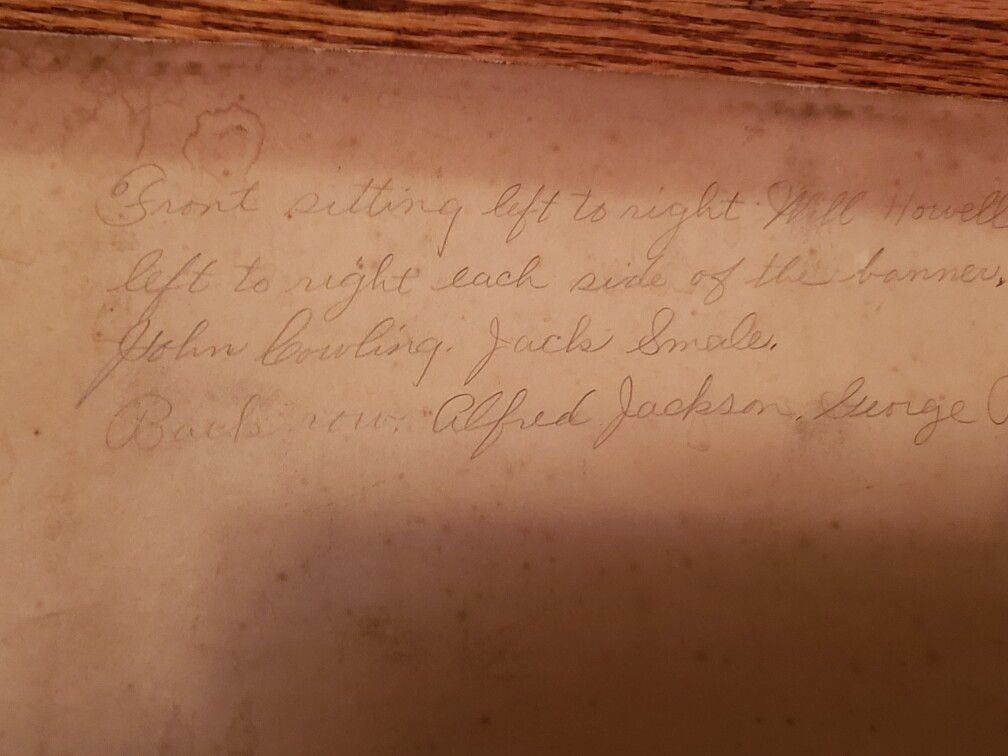 Front sitting left to right Will Howell
left to right each side of the banner.
John Cowling. Jack Smale.
Back row. Alfred Jackson. George